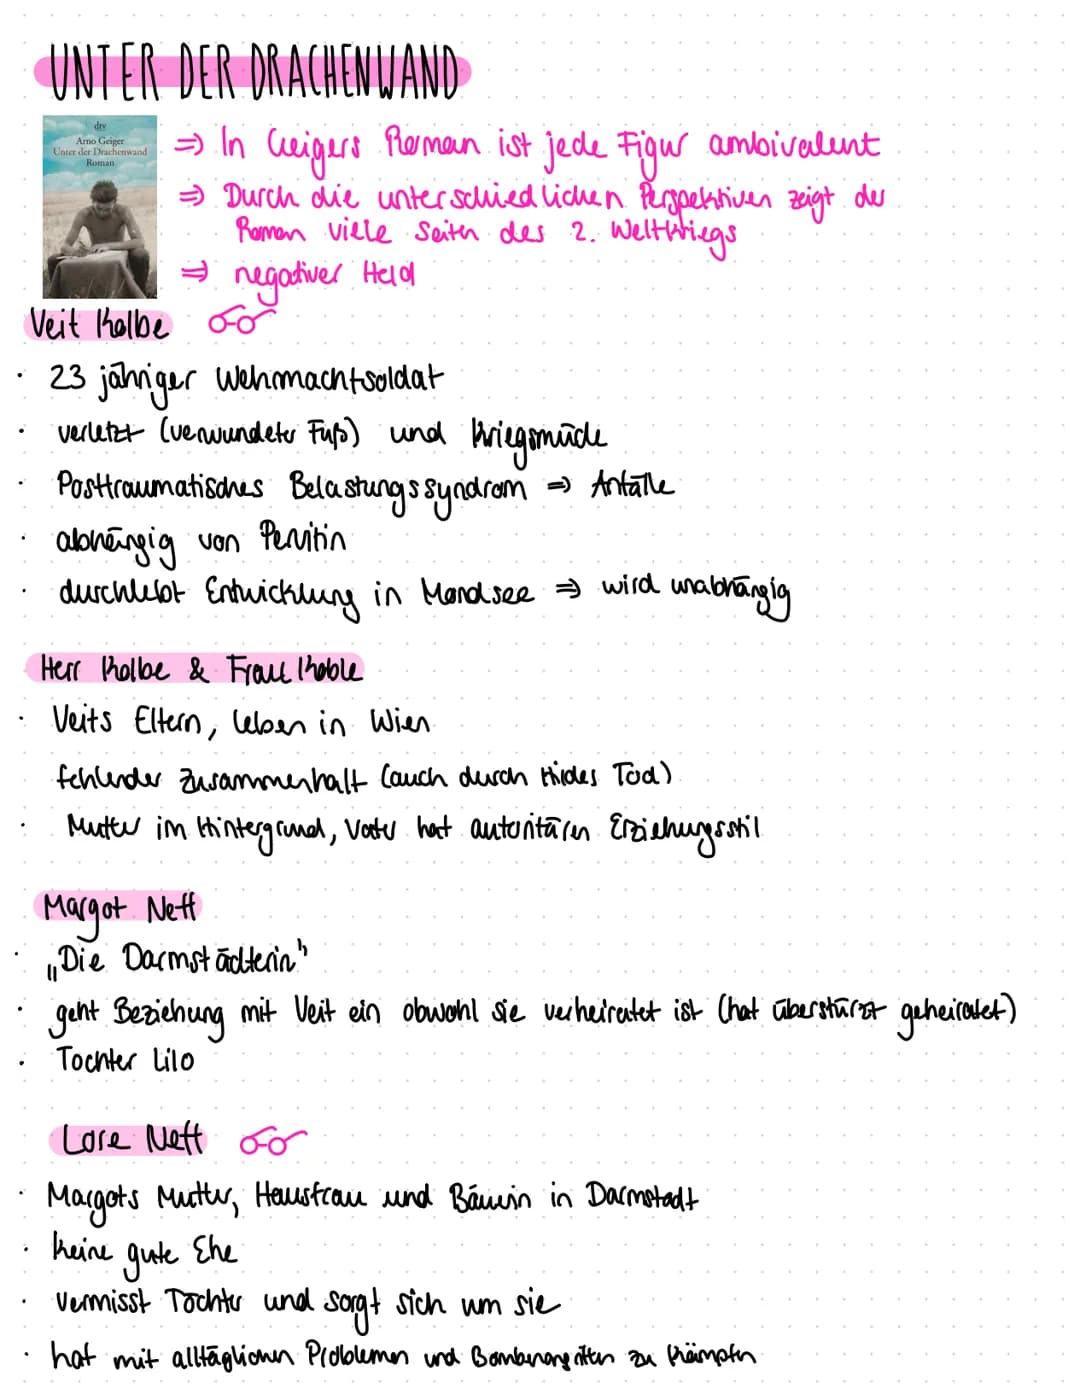 UNTER DER DRACHENWAND
dtv
Arno Geiger
Unter der Drachenwand
Roman
⇒ In Geigers Roman ist jede Figur ambivalent
⇒ Durch die unterschiedlichen Perspektiven zeigt der
Roman viele Seiten des 2. Weltkriegs
⇒ negativer Held
Veit Kolbe
· 23 jähriger Wehrmachtsoldat
· verletzt (verwundeter Fuß) und kriegsmüde
· Posttraumatisches Belastungssyndrom ⇒ Anfälle
· abhängig von Pervitin
· durchlebt Entwicklung in Mondsee ⇒ wird unabhängig
Herr Kolbe & Frau Koble
· Veits Eltern, leben in Wien
fehlender Zusammenhalt (auch durch Hildes Tod)
· Mutter im Hintergrund, Vater hat autoritären Erziehungsstil
Margot Neff
· „Die Darmstädterin"
· geht Beziehung mit Veit ein obwohl sie verheiratet ist (hat überstürzt geheiratet)
· Tochter Lilo
Lore Neff
· Margots Mutter, Hausfrau und Bäuerin in Darmstadt
· keine gute Ehe
· vermisst Tochter und sorgt sich um sie
· hat mit alltäglichen Problemen und Bombenangriffen zu kämpfen